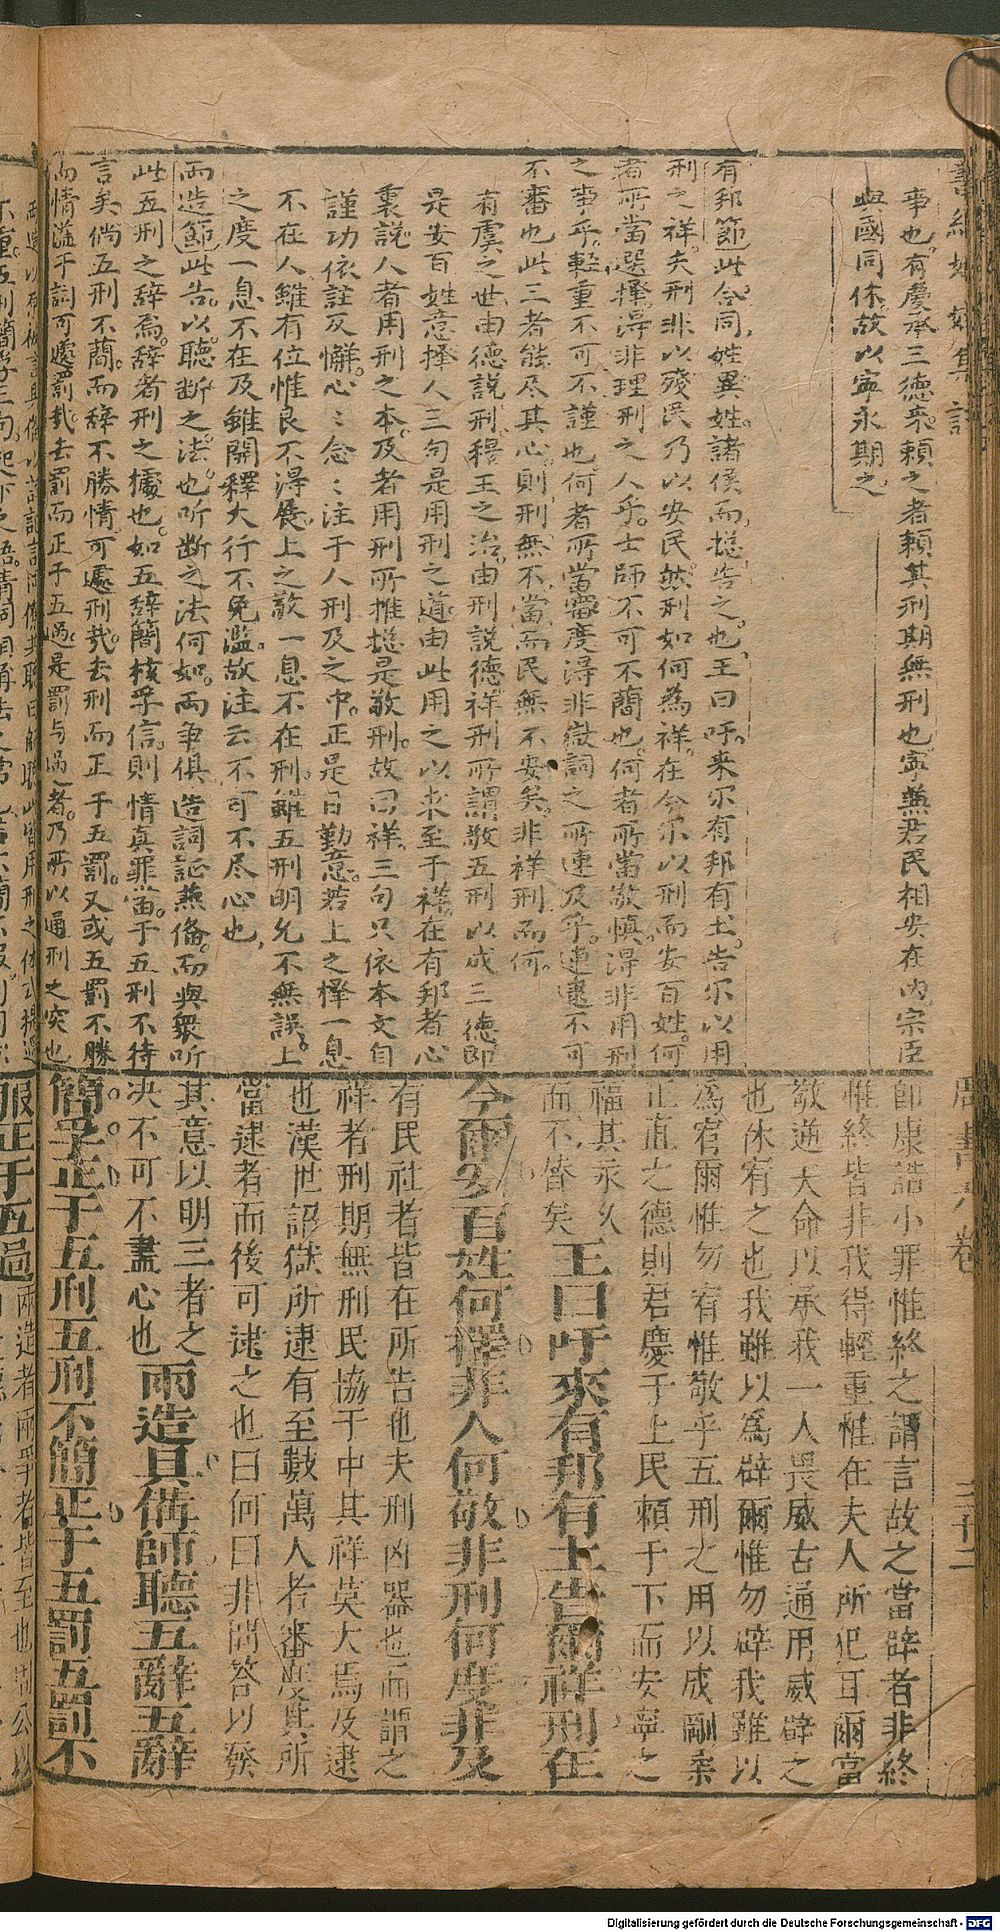 事也有慶承三德來賴之者賴其刑期無刑也寧兼君民相安在內宗臣
與國同休故以寧永期之
有邦節此令同姓異姓諸侯而摠告之也王曰吁來尔有邦有土告尔以用
刑之祥夫刑非以殘民乃以安民然刑如何為祥在今尔以刑而安百姓何
者所當選擇淂非理刑之人乎士師不可不蕳也何者所當敬慎淂非用刑
之事乎輕重不可不謹也何者所當審度淂非獄詞之所連及乎連逮不可
不審也此三者能尽其心則刑無不當而民無不安矣非祥刑而何
有虞之世由德説刑穆王之治由刑説德祥刑所謂敬五刑以成三德即
是安百姓意擇人三句是用刑之道由此用之以求至于祥在有邦者心
裏説人者用刑之本及者用刑所推摠是敬刑故曰祥三句只依本文自
謹功依註反懈心〻念〻注于人刑及之中正是日勤意若上之擇一息
不在人雖有位惟良不淂展上之敬一息不在刑雖五刑明允不無誤上
之度一息不在及雖開釋大行不免濫故注云不可不尽心也
兩造節此告以聽断之法也听断之法何如兩争俱造詞証兼俻而與衆听
此五刑之辞焉辞者刑之據也如五辞蕳核孚信則情真罪當于五刑不待
言矣倘五刑不蕳而辞不勝情可處刑㢤去刑而正于五罰又或五罰不勝
而情溢于詞可處罰㢤去罰而正于五過是罰与過者乃所以通刑之突也
周書六卷
即康誥小罪惟終之謂言故之當辟者非終
惟終皆非我得輕重惟在夫人所犯耳爾當
敬逆天命以承我一人畏威古通用威辟之
也休宥之也我雖以為辟爾惟勿辟我雖以
為宥爾惟勿宥惟敬乎五刑之用以成剛柔
正直之德則君慶于上民賴于下而安寧之
福其永久
而不替矣王曰吁來有邦有土告爾祥刑在
今爾安百姓何擇非人何敬非刑何度非及
有民社者皆在所告也夫刑凶器也而謂之
祥者刑期無刑民協于中其祥莫大焉及逮
也漢世詔獄所逮有至數萬人者審度其所
當逮者而後可逮之也曰何曰非問答以發
其意以明三者之
决不可不盡心也兩造具備師聽五辭五辭
簡孚正于五刑五刑不簡正于五罰五罰不
服正于五過兩造者兩爭者皆至也
Digitalisierung gefördert durch die Deutsche Forschungsgemeinschaft - DFG